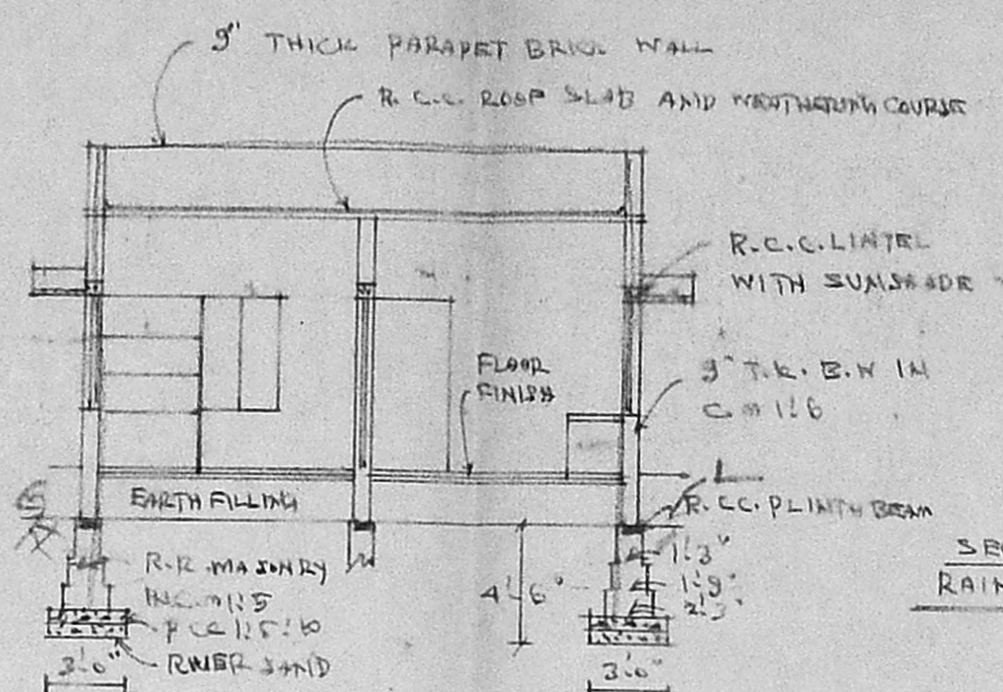 9" THICK PARAPET BRICK WALL
R.C.C. ROOF SLAB AND WEATHERING COURSE
R.C.C. LINTEL
WITH SUNSHADE
FLOOR
FINISH
9" T.K. B.W IN
C m 1:6
EARTH FILLING
R.CC. PLINTH BEAM
R.R. MASONRY
IN C.m 1:5
P CC 1:5:10
RIVER SAND
4'-6"
1'.3"
1'.9"
2'.3"
3'.0"
3'.0"